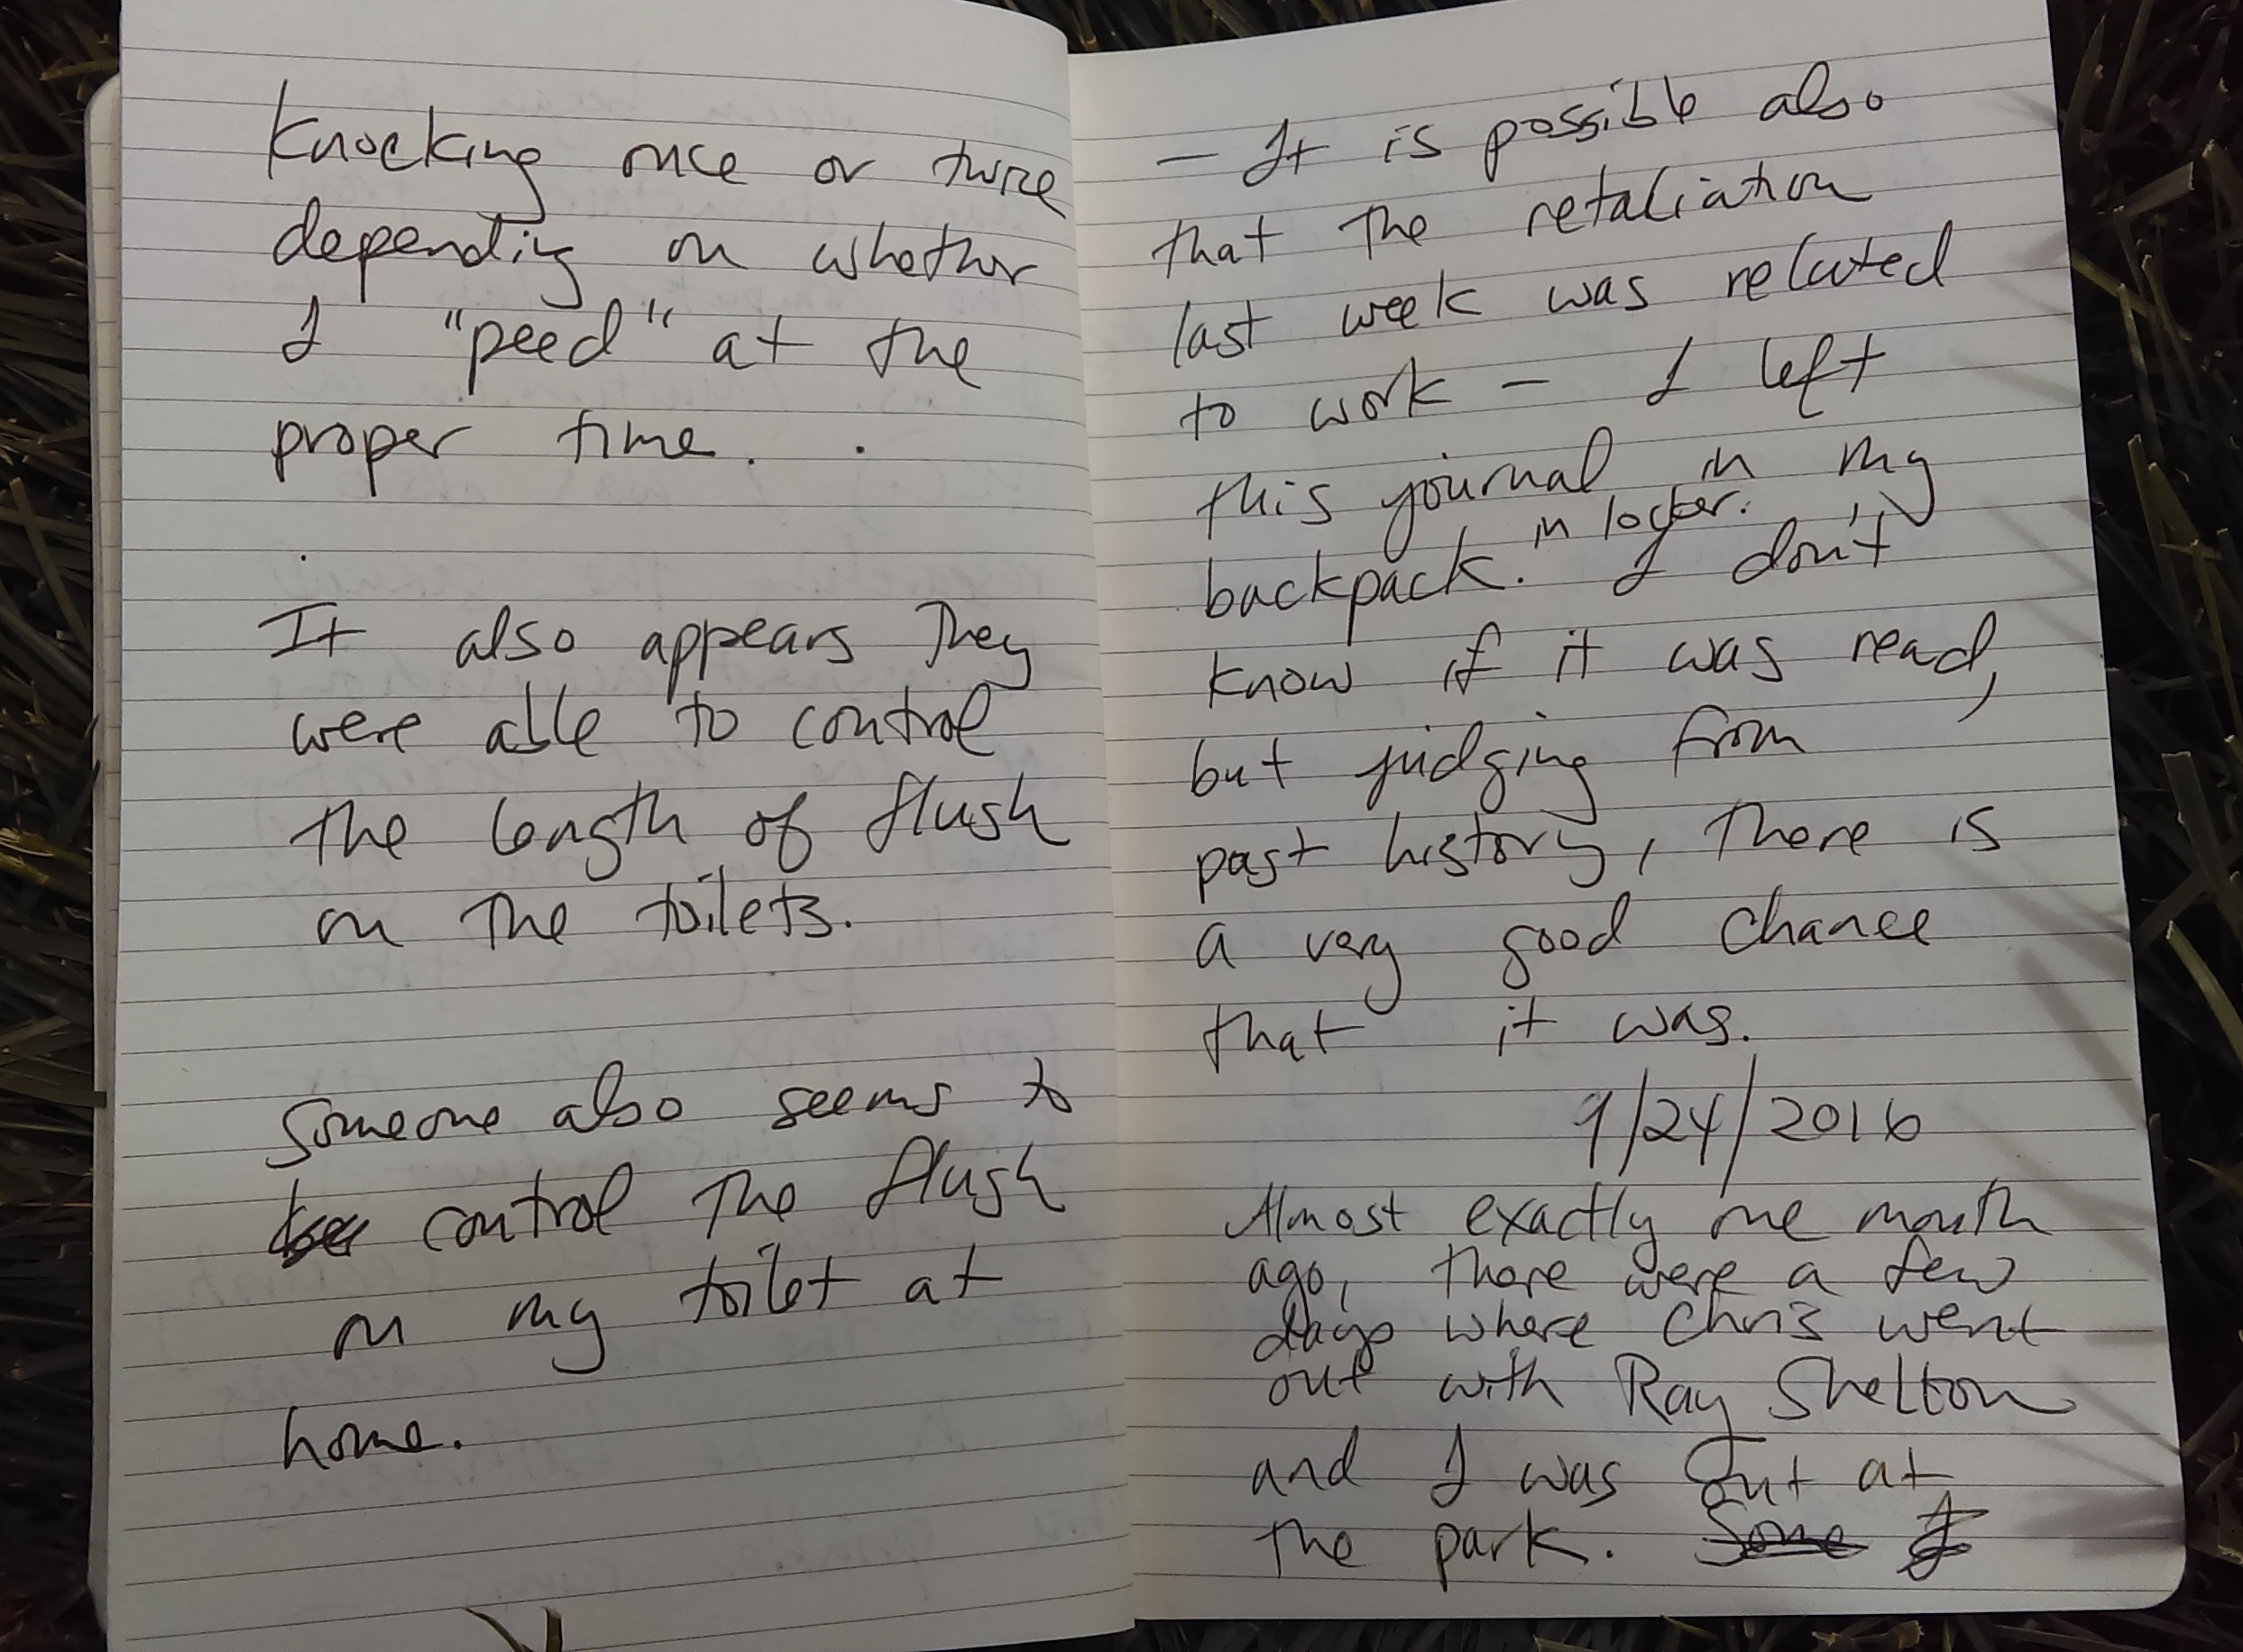 Knocking once or twice
depending on whether
I "peed" at the
proper time.
It also appears they
were able to control
the length of flush
on the toilets.
Someone also seems to
control the flush
on my toilet at
home.
— It is possible also
that the retaliation
last week was related
to work — I left
this journal in my
in locker.
backpack. I don't
know if it was read,
but judging from
past history, there is
a very good chance
that it was.
9/24/2016
Almost exactly one month
ago, there were a few
days where Chris went
out with Ray Shelton
and I was out at
the park. Some I